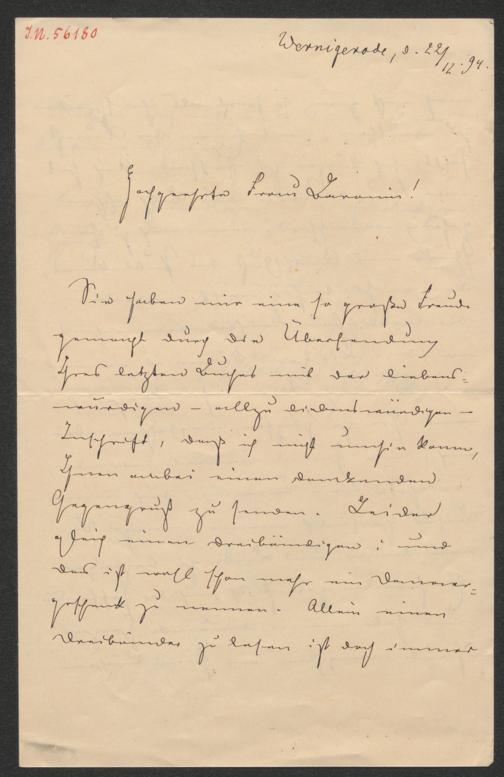 J.N. 56180
Wernigerode, d. 22/12. 94.
Hochgeehrte Frau Baronin!
Sie haben mir eine so große Freude
gemacht durch die Übersendung
Ihres letzten Buches mit der liebens-
würdigen – allzu liebenswürdigen –
Inschrift, daß ich nicht umhin kann,
Ihnen anbei einen dankenden
Gegengruß zu senden. Leider
gleich einen dreibändigen: und
das ist wohl schon mehr ein Danaer-
geschenk zu nennen. Allein einen
Dreibänder zu lesen ist doch immer